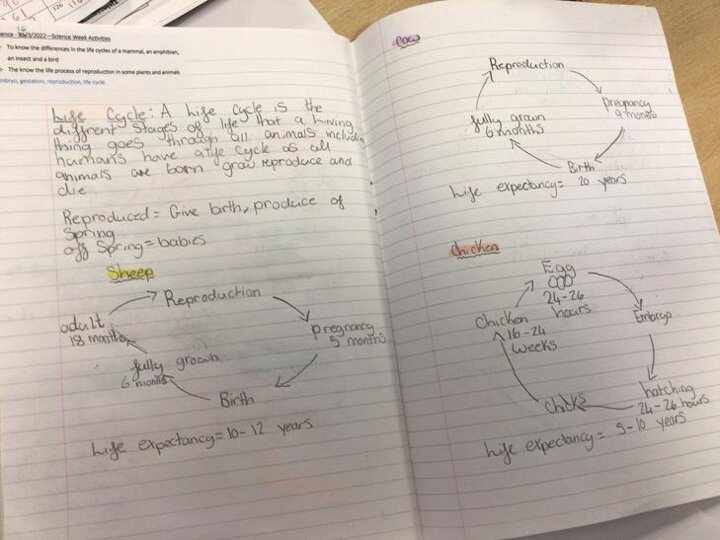 Science Week Activities
To know the differences in the life cycles of a mammal, an amphibian,
an insect and a bird
The know the life process of reproduction in some plants and animals
embryo, gestation, reproduction, life cycle
Life Cycle: A life cycle is the
different stages of life that a living
thing goes through all animals including
humans have a life cycle as all
animals are born grow reproduce and
die
Reproduced = Give birth, produce of
Spring
off Spring = babies
Sheep
Reproduction
pregnancy
5 months
Birth
fully grown
6 months
adult
18 months
Life expectancy = 10-12 years
cow
Reproduction
pregnancy
9 months
Birth
fully grown
6 months
Life expectancy = 20 years
Chicken
Egg
24-26
hours
Embryo
hatching
24-26 hours
chicks
Chicken
16-24
weeks
Life expectancy = 5-10 years